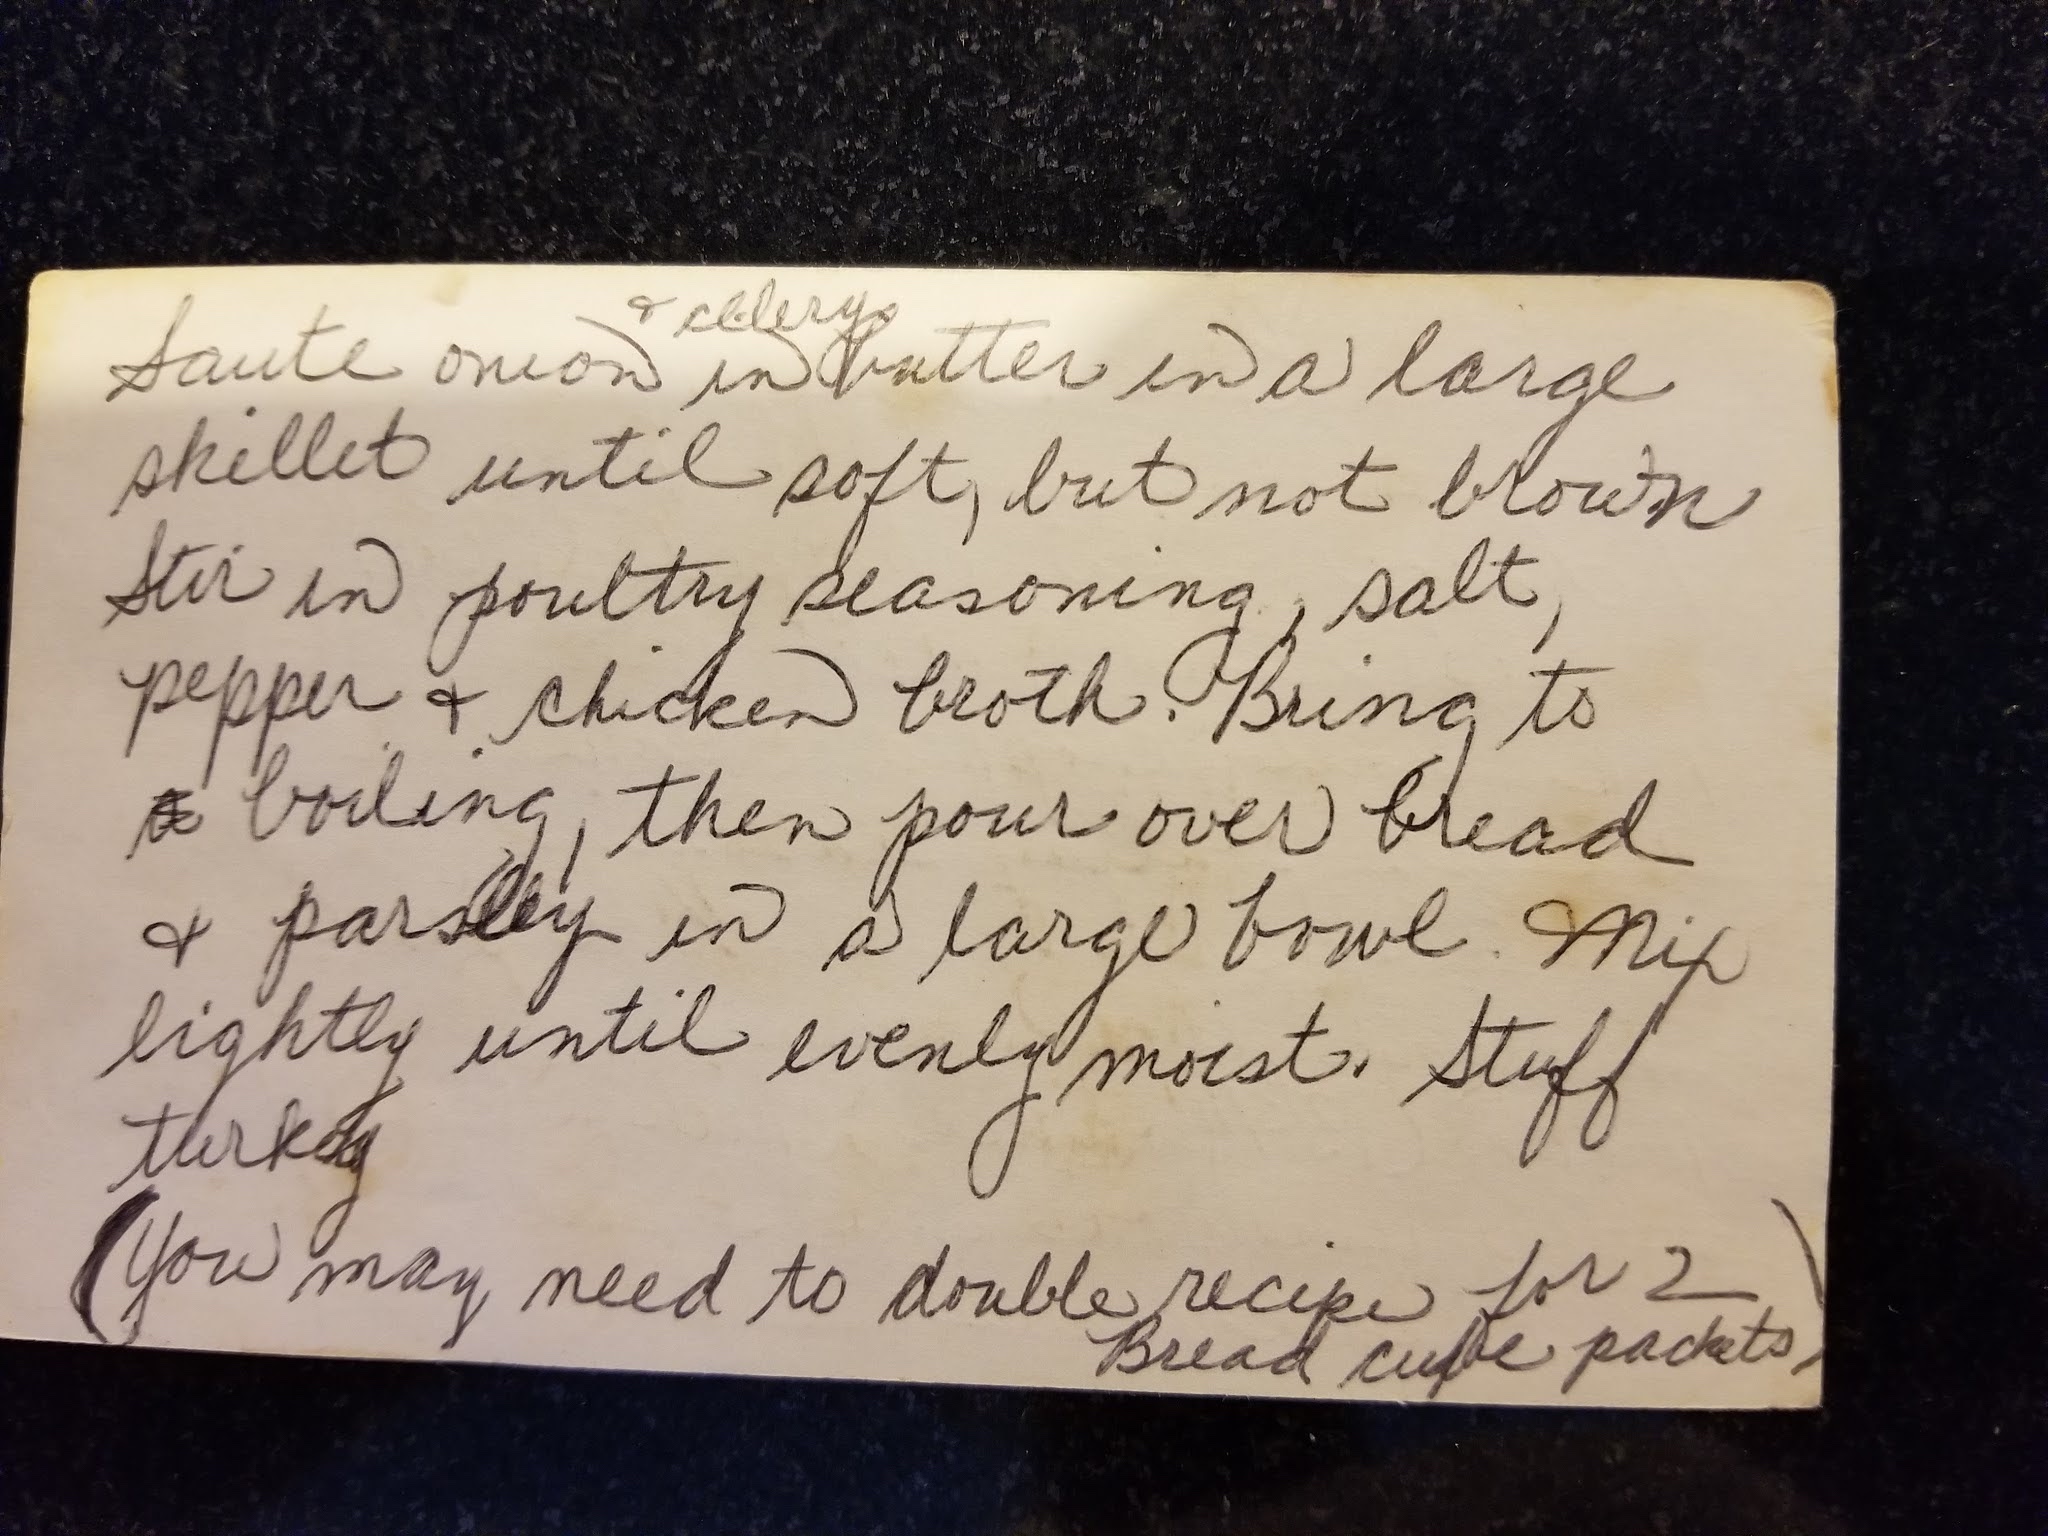 Saute onion & celery in butter in a large
skillet until soft, but not brown
Stir in poultry seasoning, salt,
pepper & chicken broth. Bring to
boiling, then pour over bread
& parsley in a large bowl. Mix
lightly until evenly moist. Stuff
turkey
(You may need to double recipe for 2
Bread cube packets)